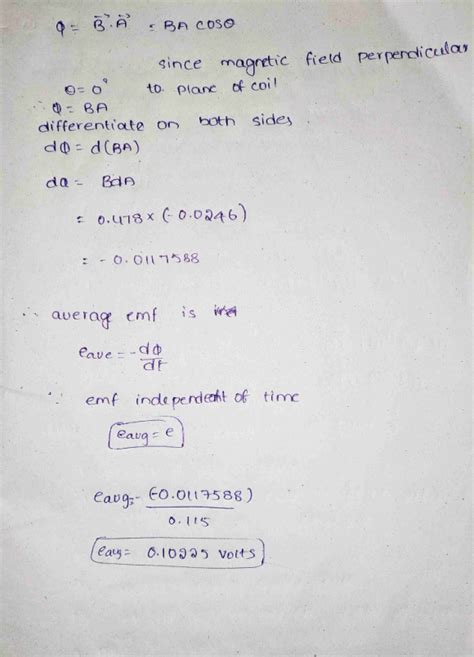 φ = B⃗.A⃗ = BA cosθ
since magnetic field perpendicular
θ=0° to plane of coil
∴ Φ = BA
differentiate on both sides.
dΦ = d(BA)
dα = BdA
= 0.478 × (-0.0246)
= -0.0117588
∴ average emf is
eave = -dΦ/dt
∵ emf independent of time
eavg = e
eavg = -(-0.0117588)/0.115
eavg = 0.10225 volts